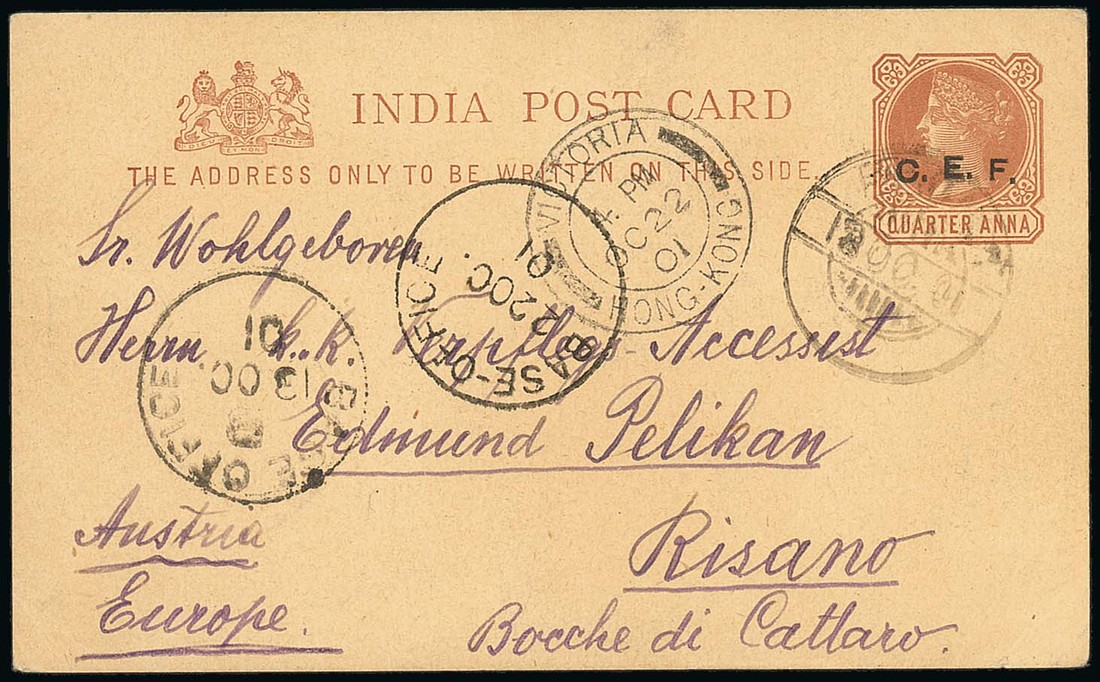 DIEU ET MON DROIT
INDIA POST CARD
THE ADDRESS ONLY TO BE WRITTEN ON THIS SIDE.
C. E. F.
QUARTER ANNA
VICTORIA
4. PM
OC 22
01
HONG-KONG
BASE-OFFICE
22 OC.
01
BASE OFFICE
13 OC.
01
Sr. Wohlgeboren
Herrn k. k. Verpflegs-Accessist
Edmund Pelikan
Austria
Risano
Europe.
Bocche di Cattaro.